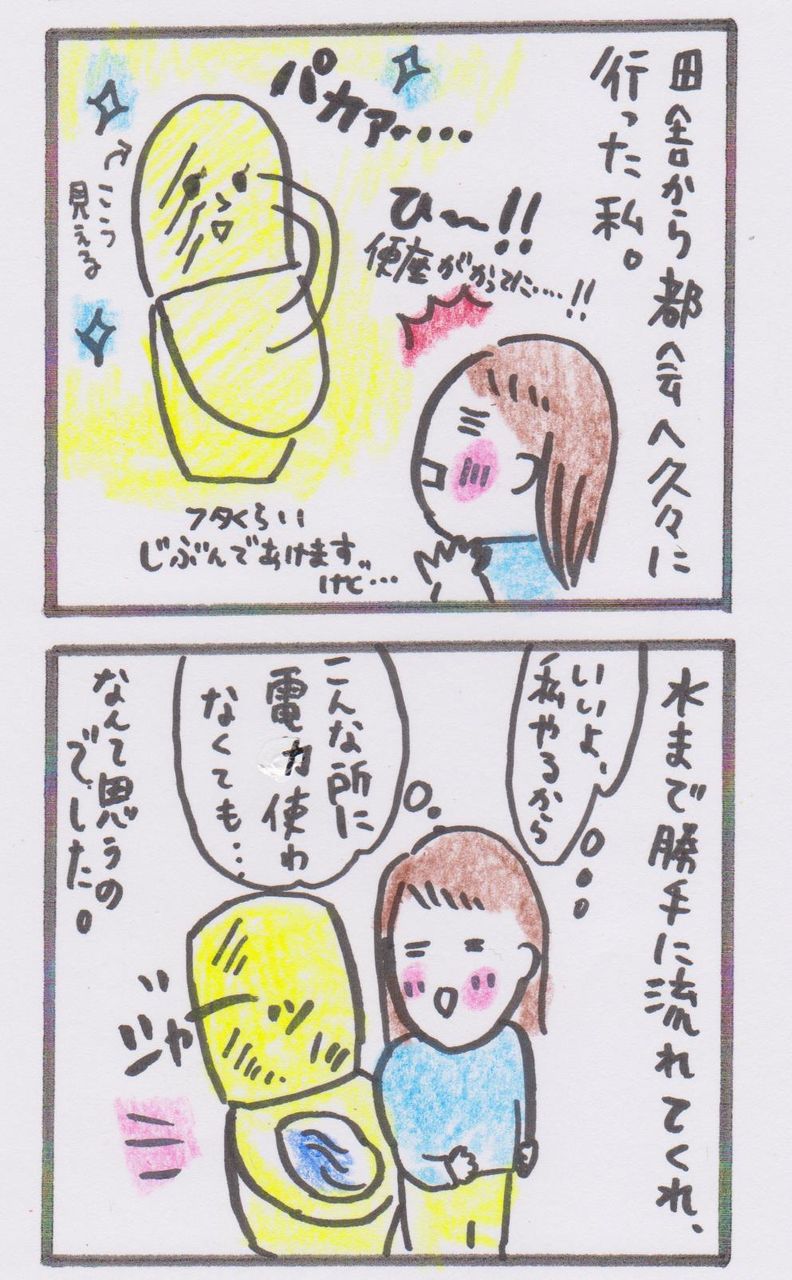 田舎から都会へ久々に
行った私。
パカァー....
ひ〜!!
便座がかってに....!!
こう
見える
フタくらい
じぶんであけます
けど...
水まで勝手に流れてくれ、
いいよ、
私やるから
こんな所に
電力使わ
なくても...
ジャーッ
なんて思うの
でした。